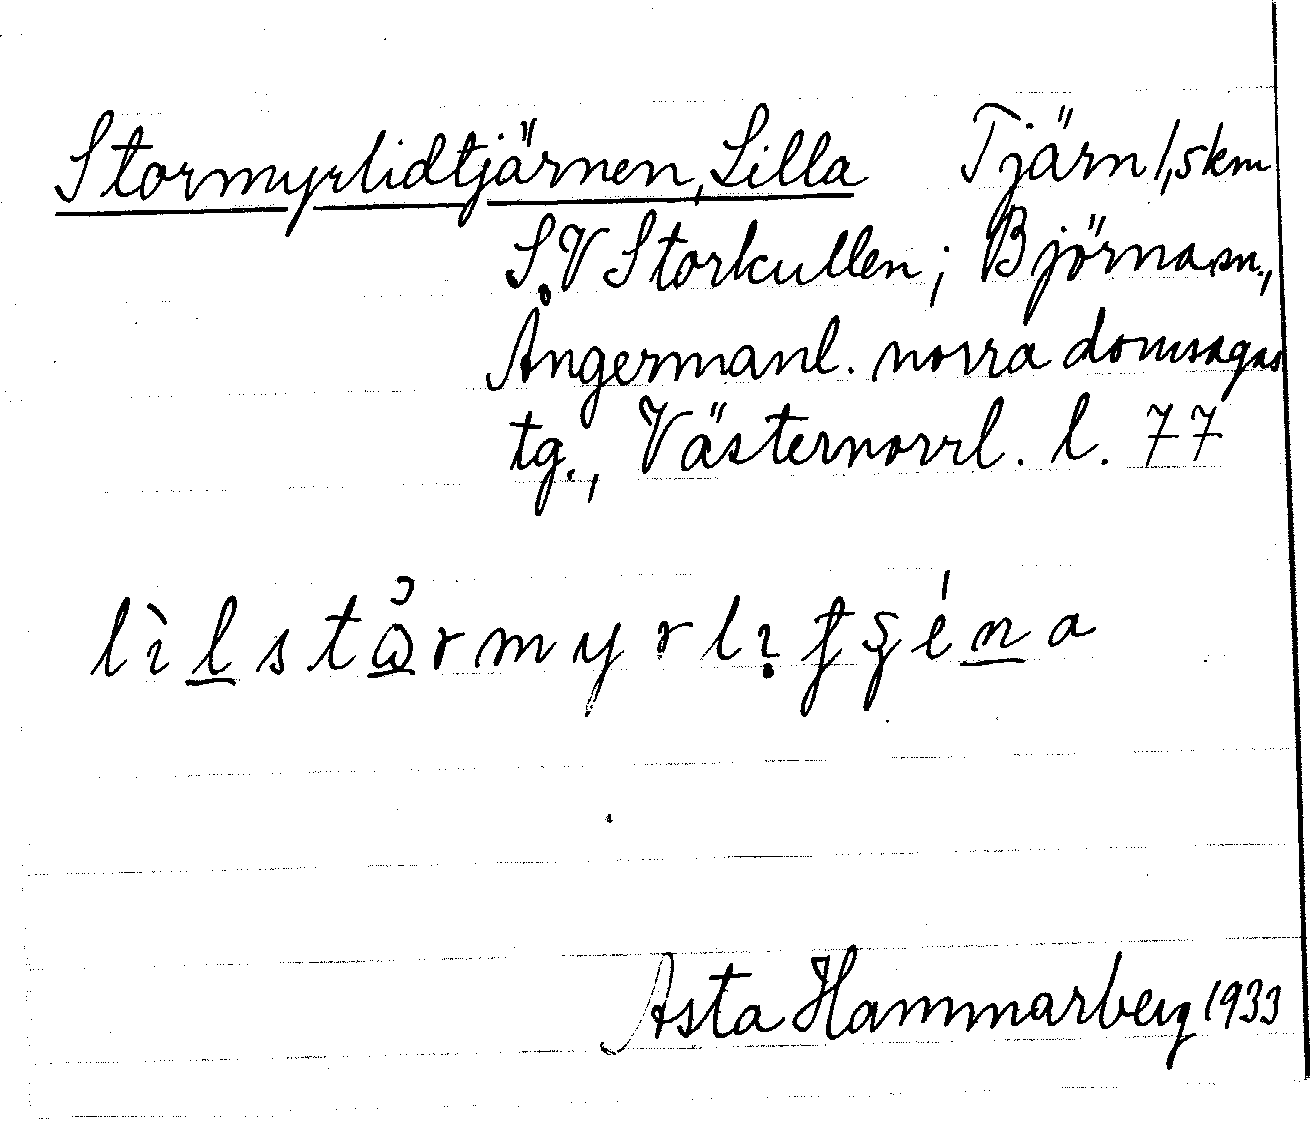 Stormyrlidtjärnen, Lilla Tjärn 1,5 km
S.V Storkullen; Björna sn.,
Ångermanl. norra domsagas
tg., Västernorrl. l. 77
lìlstårmyrlı̣
Asta Hammarberg 1933